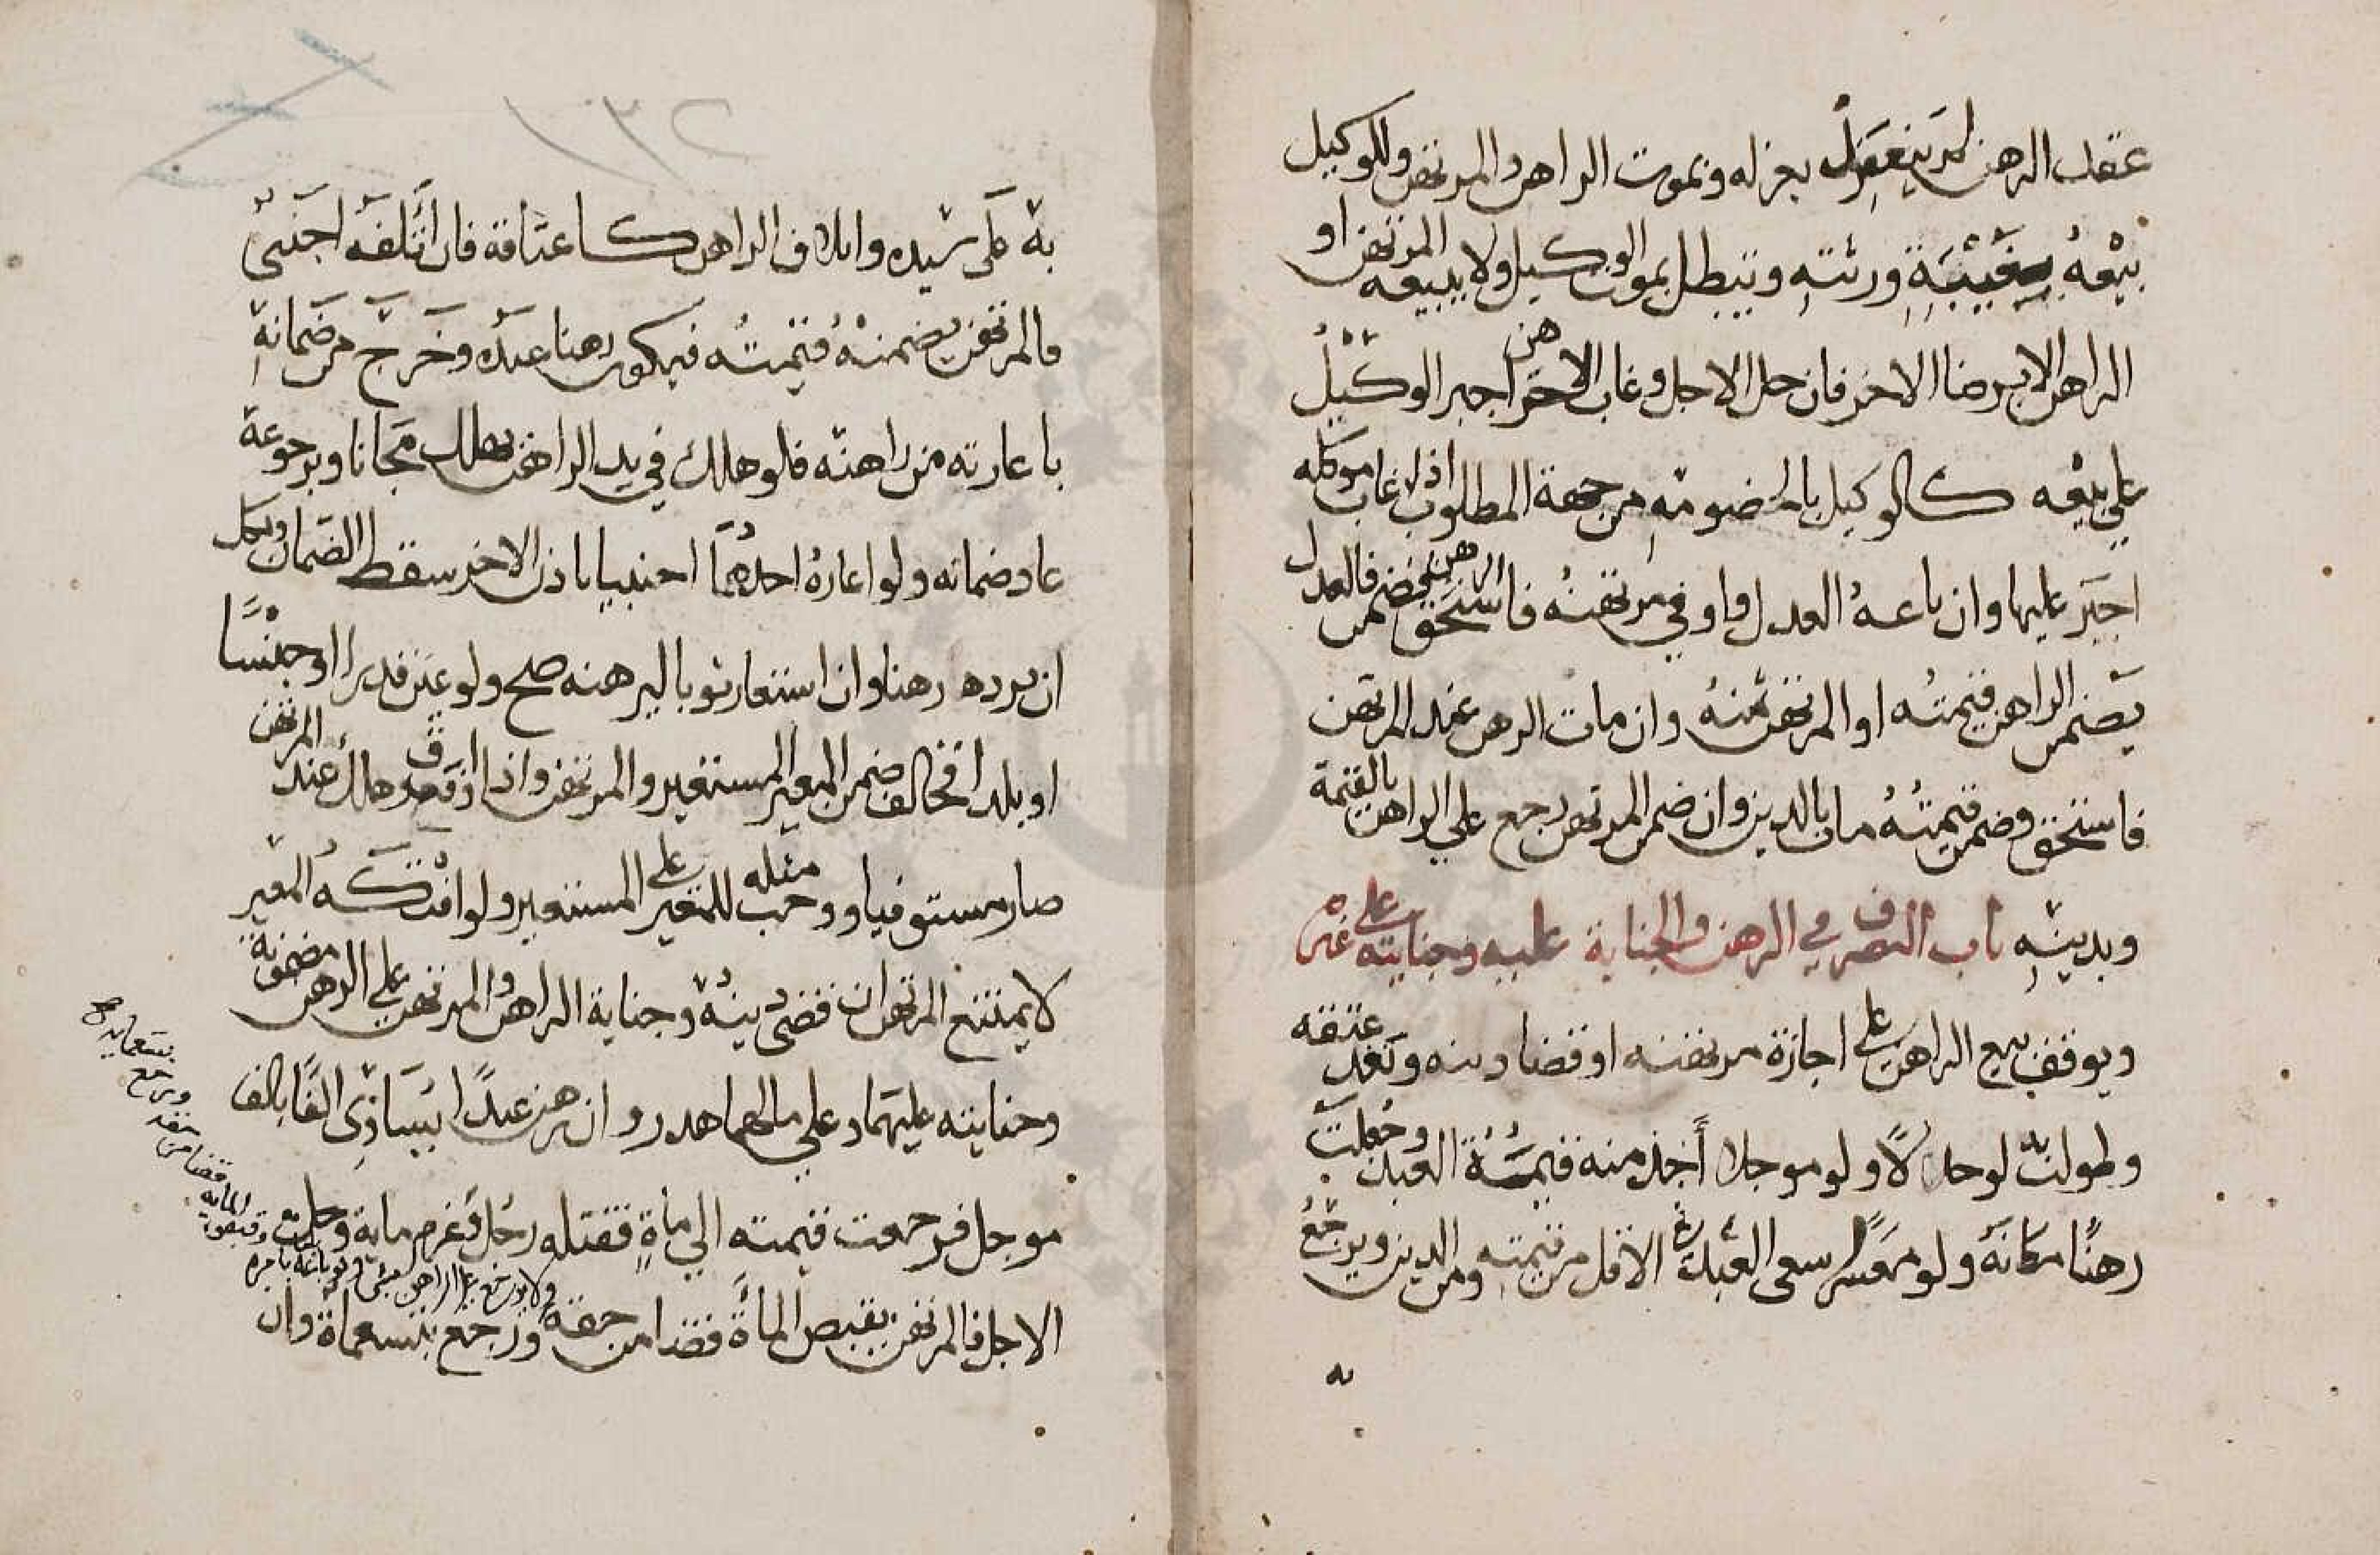 عقد الرهن لم ينعزل بعزله وبموت الراهن والمرتهن وللوكيل
بيعه بغيبة ورثته وتبطل بموت الوكيل ولا يبيعه المرتهن او
الراهن الا برضا الاخر فان حل الاجل وغاب الراهن اجبر الوكيل
على بيعه كالوكيل بالخصومة من جهة المطلوب اذا غاب موكله
اجبر عليها وان باعه العدل واوفى مرتهنه ثمنه فاستحق الرهن فضمن فالعدل
يضمن الراهن قيمته او المرتهن ثمنه وان مات الرهن عند المرتهن
فاستحق وضمن قيمته مات بالدين وان ضمن المرتهن رجع على الراهن بالقيمة
وبدينه باب التصرف في الرهن والجناية عليه وجنايته على غيره
ويوقف بيع الراهن على اجازة مرتهنه او قضا دينه ونفد عتقه
وطولب بدينه لو حالا ولو موجلا أخذ منه قيمة العبد وجعلت
رهنًا مكانه ولو معسرًا سعى العبد في الاقل من قيمته ومن الدين ويرجع
به
به على سيده واتلاف الراهن كاعتاقه فان أتلفه اجنبى
فالمرتهن يضمنه قيمته فيكون رهنا عنده وخرج من ضمانه
باعارته من راهنه فلو هلك في يد الراهن هلك مجانا وبرجوعه
عاد ضمانه ولو اعاره احدهما اجنبيا باذن الاخر سقط الضمان ولكل
ان يرده رهنا وان استعار ثوبا ليرهنه صح ولو عين قدرا او جنسًا
او بلدا فخالف ضمن المعير المستعير والمرتهن وان وافق وهلك عند المرتهن
صار مستوفيا ووجب مثله للمعير على المستعير ولو افتكه المعير
لا يمتنع المرتهن ان قضى دينه وجناية الراهن والمرتهن على الرهن مضمونة
وجنايته عليهما وعلى مالهما هدر وان رهن عبدًا يساوى الفًا بالف
موجل فرجعت قيمته الي مأة فقتله رجل وغرم ماية وحل
الاجل فالمرتهن يقبض المأة قضا من حقه ولا يرجع على الراهن بشى ولو باعه بامره
بالمائة وقبض المائة قضا من حقه ورجع بتسعماية
ورجع بتسعماة وان